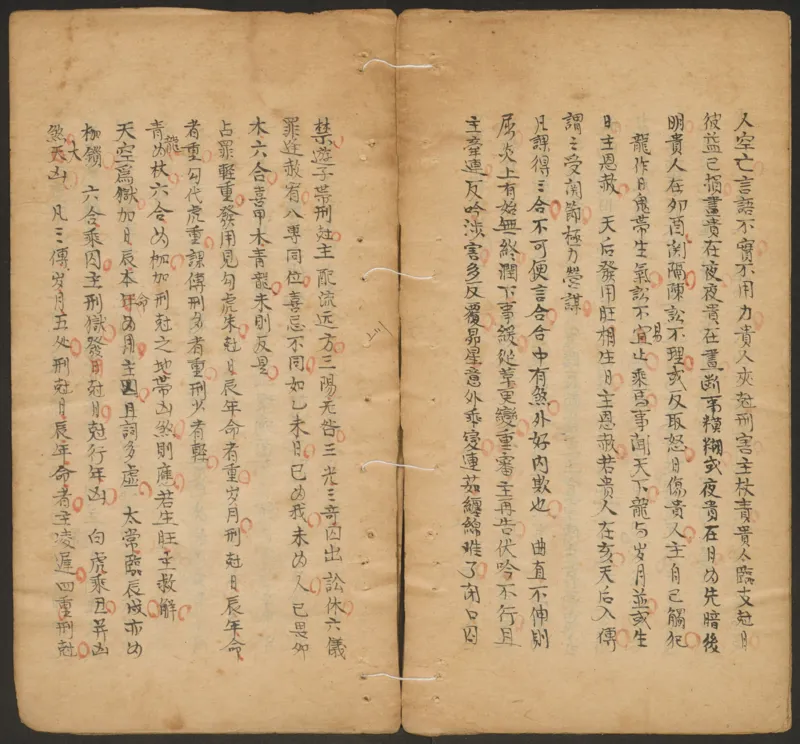 人空亡言語不實不用力貴人夾尅刑害主杖責貴人臨支尅日
彼益己損晝貴在夜夜貴在晝断事糢糊或夜貴在日为先暗後
明貴人在夘酉関隔陳訟不理或反取怒日傷貴人主自己觸犯
龍作日鬼帶生氣訟不宜止乘馬事聞天下龍与岁月並或生
易
日主恩赦　天后發用旺相生日主恩赦若貴人在亥天后入傳
謂之受関節極力營謀
凡課得三合不可便言合合中有煞外好内欺也　曲直不伸則
屈炎上有始無終潤下事緩從革更變重審主再告伏吟不行且
主牽連反吟涉害多反覆昴星意外乖家連茹纏綿难了闭口囚
禁遊子帶刑尅主配流远方三陽无咎三光三奇囚出訟休六儀
罪逹赦宥八專同位喜忌不同如乙未日己为我未为人己畏夘
木六合喜甲木青龍未則反是
占罪輕重發用見勾虎朱尅日辰年命者重岁月刑尅日辰年命
者重勾代虎重課傳刑多者重刑少者輕
青为杖六合为枷加刑尅之地帶凶煞則應若生旺主救解
龍
天空爲獄加日辰本年为月主囚且詞多虚　太常臨辰戌亦为
命
枷鎖　六合乘囚主刑獄發用尅日尅行年凶　白虎乘丑并凶
煞大凶　凡三傳岁月五处刑尅日辰年命者主凌遲四重刑尅
大